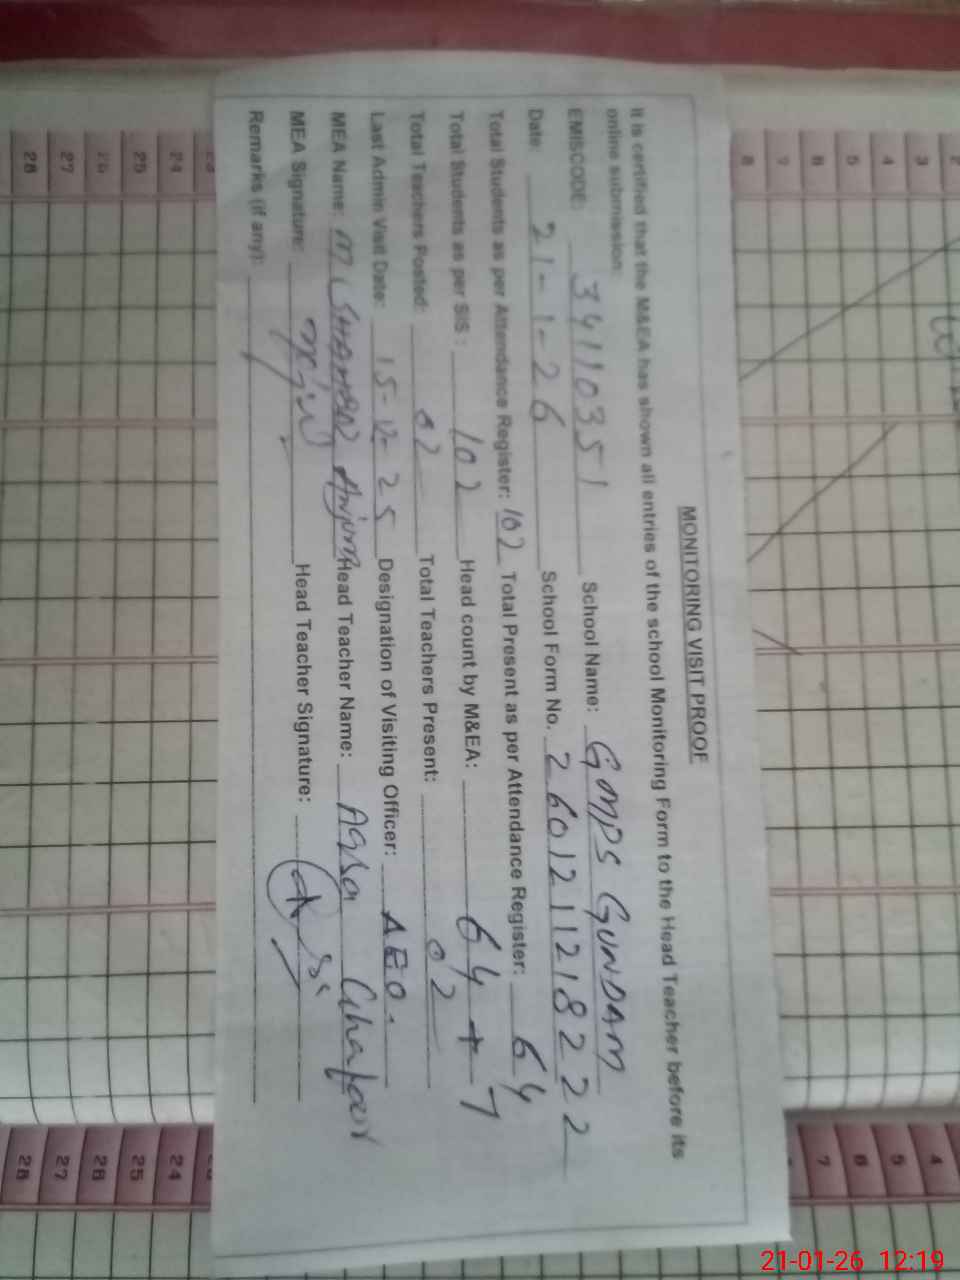 MONITORING VISIT PROOF
It is certified that the M&EA has shown all entries of the school Monitoring Form to the Head Teacher before its
online submission:
EMISCODE: 34110351 School Name: GMPS GUNDAM
Date: 21-1-26 School Form No. 2601211218222
Total Students as per Attendance Register: 102 Total Present as per Attendance Register: 64
Total Students as per SIS: 102 Head count by M&EA: 64+7
Total Teachers Posted: 02 Total Teachers Present: 02
Last Admin Visit Date: 15-12-25 Designation of Visiting Officer: AEO.
MEA Name: Anjum Head Teacher Name: Aqsa Ghafoor
MEA Signature: Head Teacher Signature:
Remarks (if any):
28 27 26 25 24
8 7 6 5 4 3 2
28 27 26 25 24
7 6 5 4
21-01-26 12:19